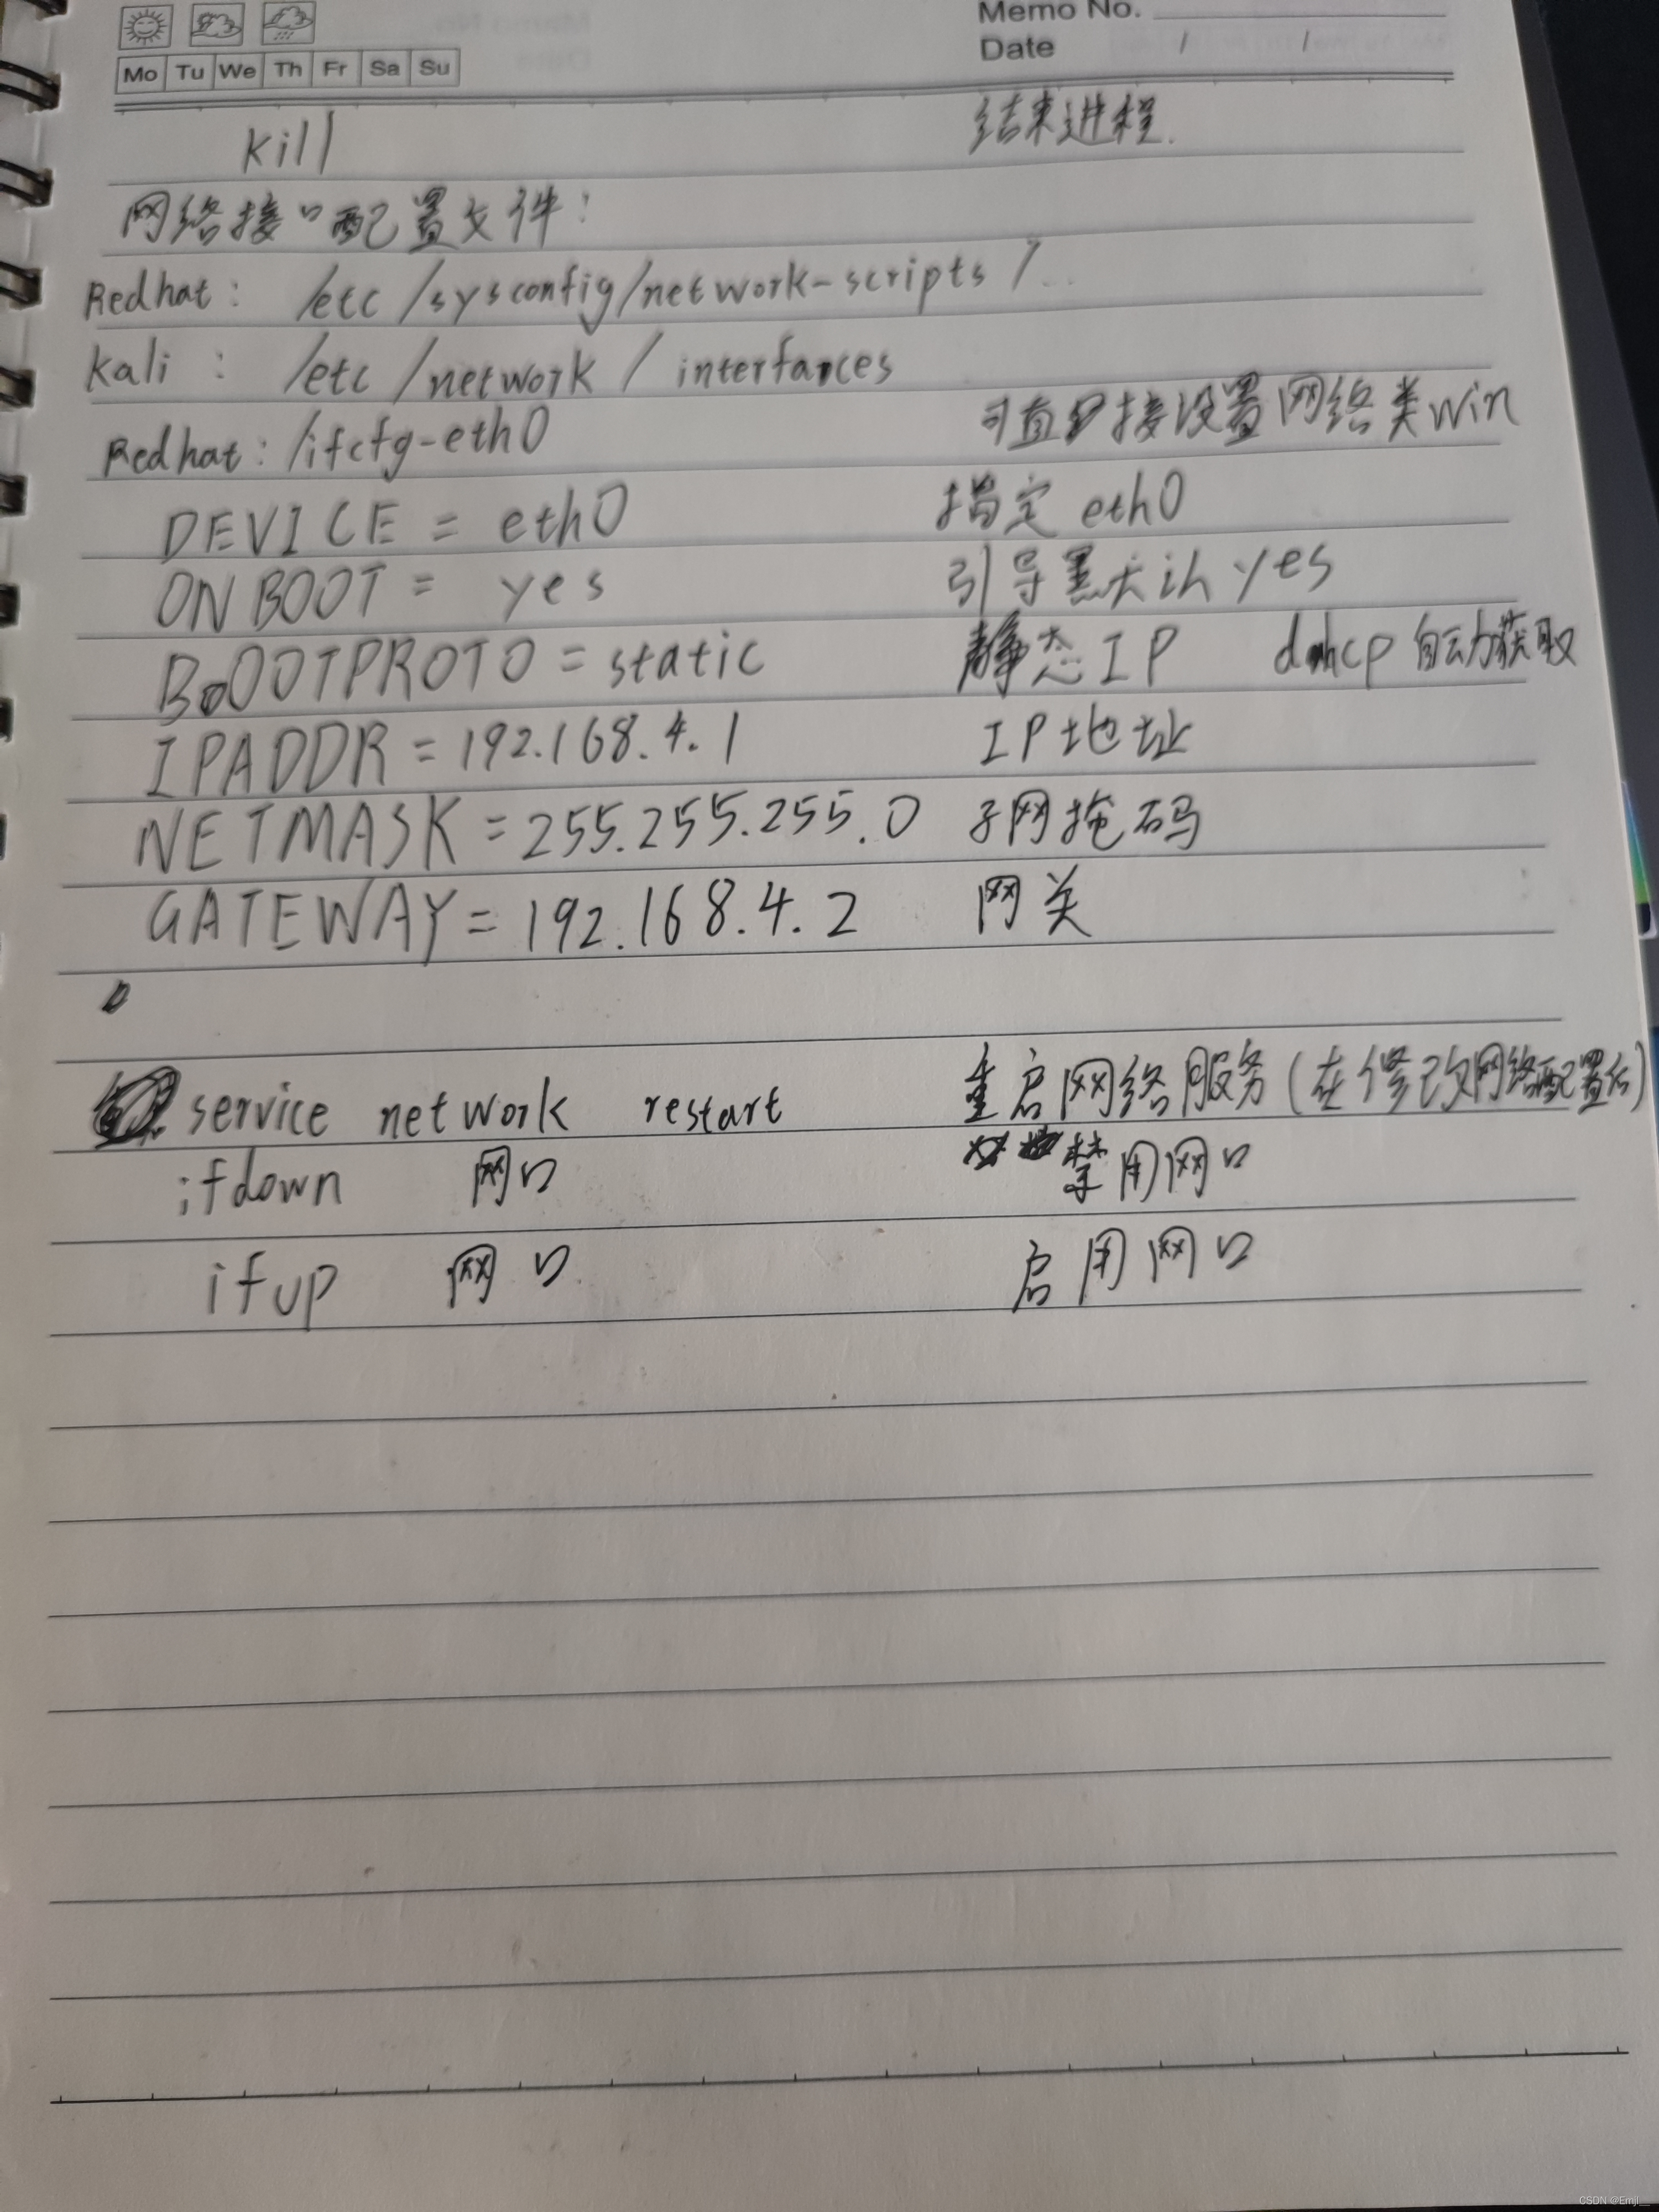 Memo No.
Date / /
Mo Tu We Th Fr Sa Su
kill 结束进程.
网络接口配置文件:
Redhat: /etc/sysconfig/network-scripts/..
kali: /etc/network/interfaces
Redhat: /ifcfg-eth0 可直接设置网络类win
DEVICE = eth0 指定 eth0
ONBOOT = yes 引导默认yes
BOOTPROTO = static 静态IP dhcp自动获取
IPADDR = 192.168.4.1 IP地址
NETMASK = 255.255.255.0 子网掩码
GATEWAY = 192.168.4.2 网关
service network restart 重启网络服务(在修改网络配置后)
ifdown 网口 禁用网口
ifup 网口 启用网口
CSDN @Emjl__